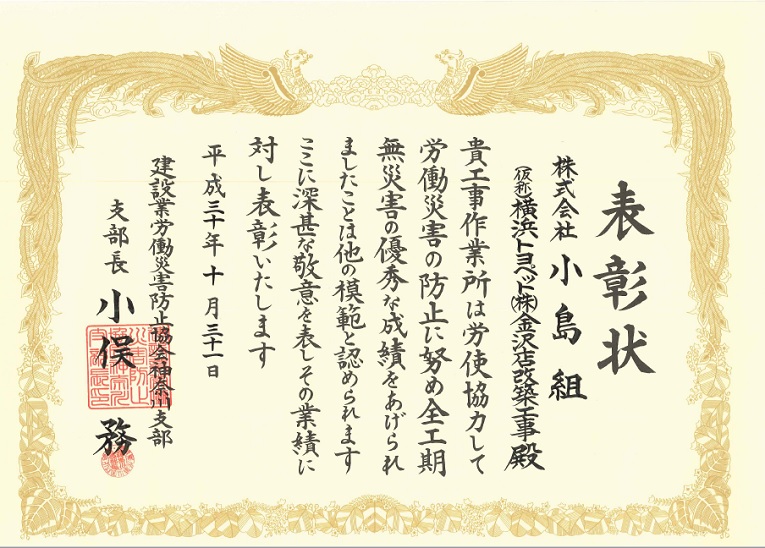 表彰状
株式会社 小島組
(仮称)横浜トヨペット㈱金沢店改築工事殿
貴工事作業所は労使協力して
労働災害の防止に努め全工期
無災害の優秀な成績をあげられ
ましたことは他の模範と認められます
ここに深甚な敬意を表しその業績に
対し表彰いたします
平成三十年十月三十一日
建設業労働災害防止協会神奈川支部
支部長 小俣 務